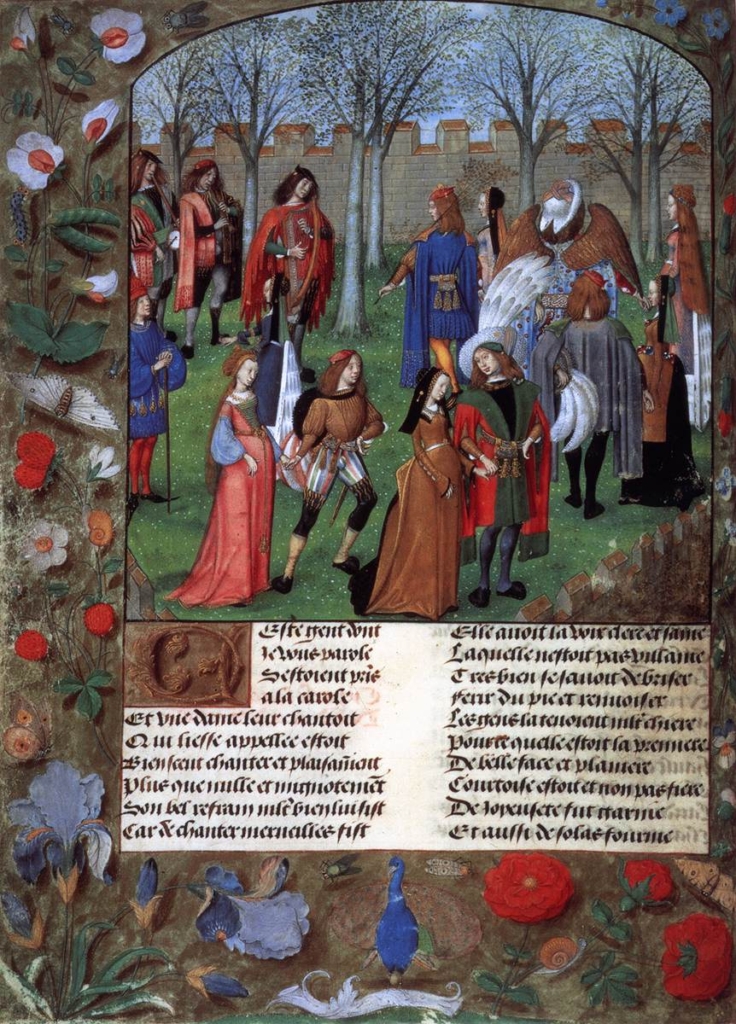 Ceste gent dont
Je vous parole
Sestoient pris
a la carole
Et vne dame leur chantoit
Qui liesse appellee estoit
Bien scent chanter et plaisament
Plus que nulle et mignotement
Son bel refrain mlt bien lui fist
Car de chanter merueilles fist
Elle auoit la voix clere et saine
Laquelle nestoit pas villaine
Tres bien se sauoit debriser
ferir du pie et renuoiser
Les gens la tenoient mlt chiere
Pource quelle estoit la premiere
De belle face et planiere
Courtoise estoit et non pas fiere
De Joyeusete fut garnie
Et aussi de solas fournie